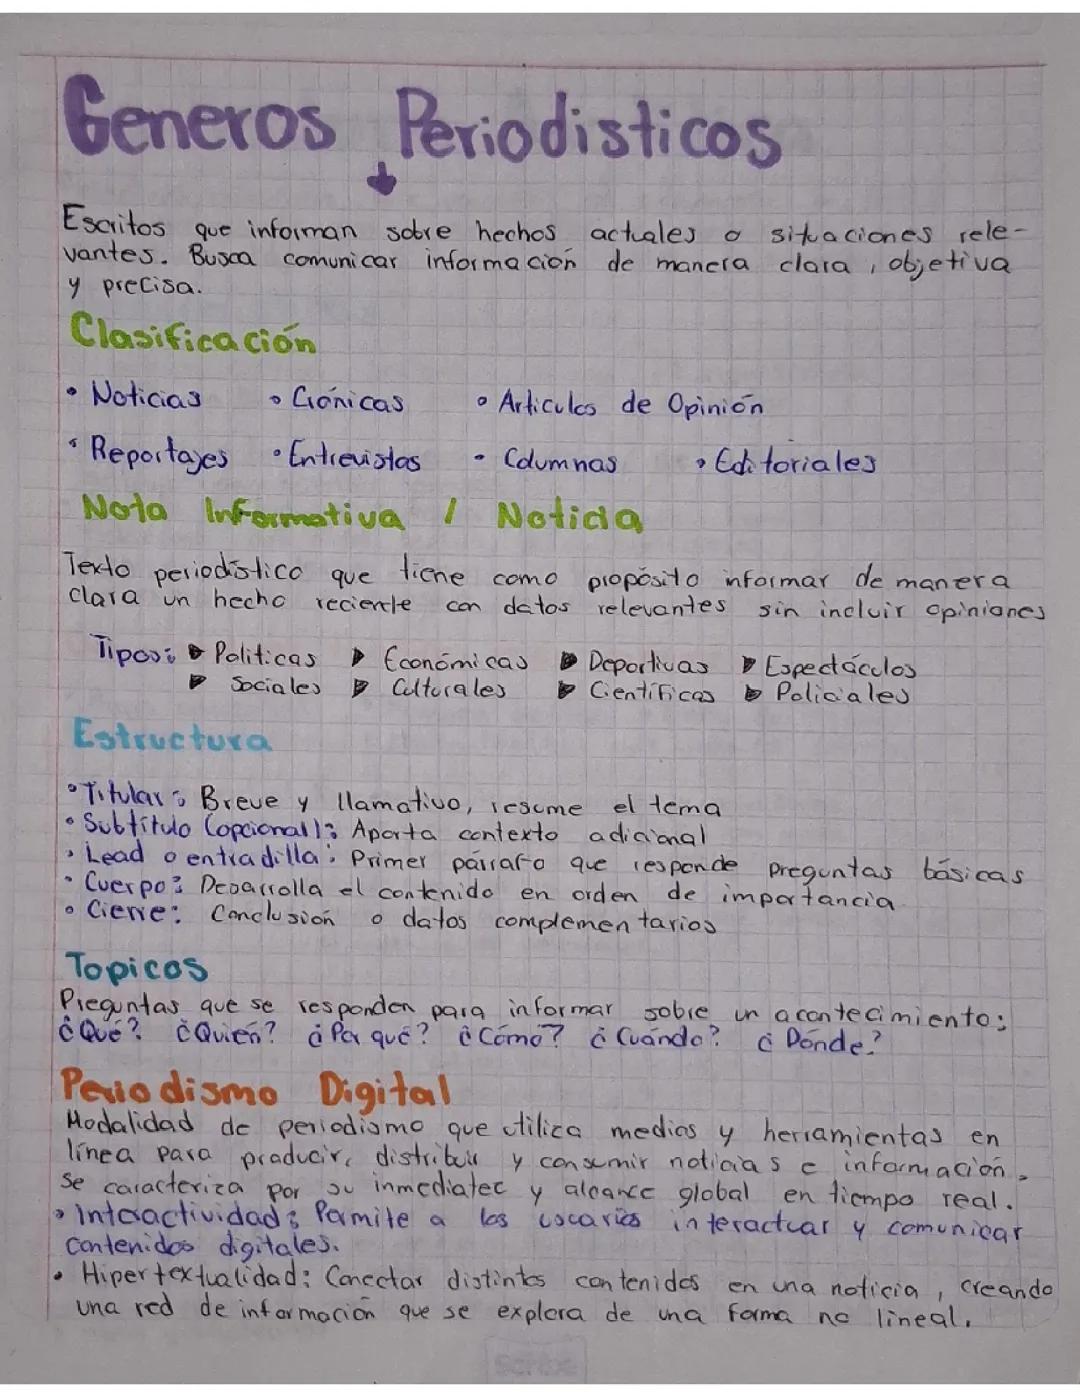 Generos Periodisticos
Escritos que informan sobre hechos actuales o situaciones rele-
vantes. Busca comunicar información de manera clara, objetiva
y precisa.
Clasificación
• Noticias • Crónicas • Articulos de Opinión
• Reportajes • Entrevistas • Columnas • Editoriales
Nota Informativa / Noticia
Texto periodístico que tiene como propósito informar de manera
clara un hecho reciente con datos relevantes sin incluir opiniones
Tipos: ▶ Politicas ▶ Económicas ▶ Deportivas ▶ Espectáculos
▶ Sociales ▶ Culturales ▶ Científicas ▶ Policiales
Estructura
• Titular: Breve y llamativo, resume el tema
• Subtítulo (opcional): Aporta contexto adicional
• Lead o entradilla: Primer párrafo que responde preguntas básicas
• Cuerpo: Desarrolla el contenido en orden de importancia
• Cierre: Conclusión o datos complementarios
Topicos
Preguntas que se responden para informar sobre un acontecimiento:
¿Qué? ¿Quién? ¿Por qué? ¿Cómo? ¿Cuándo? ¿Dónde?
Periodismo Digital
Modalidad de periodismo que utiliza medios y herramientas en
línea para producir, distribuir y consumir noticias e información.
Se caracteriza por su inmediatez y alcance global en tiempo real.
• Interactividad: Permite a los usuarios interactuar y comunicar
contenidos digitales.
• Hipertextualidad: Conectar distintos contenidos en una noticia, creando
una red de información que se explora de una forma no lineal.
Scribe